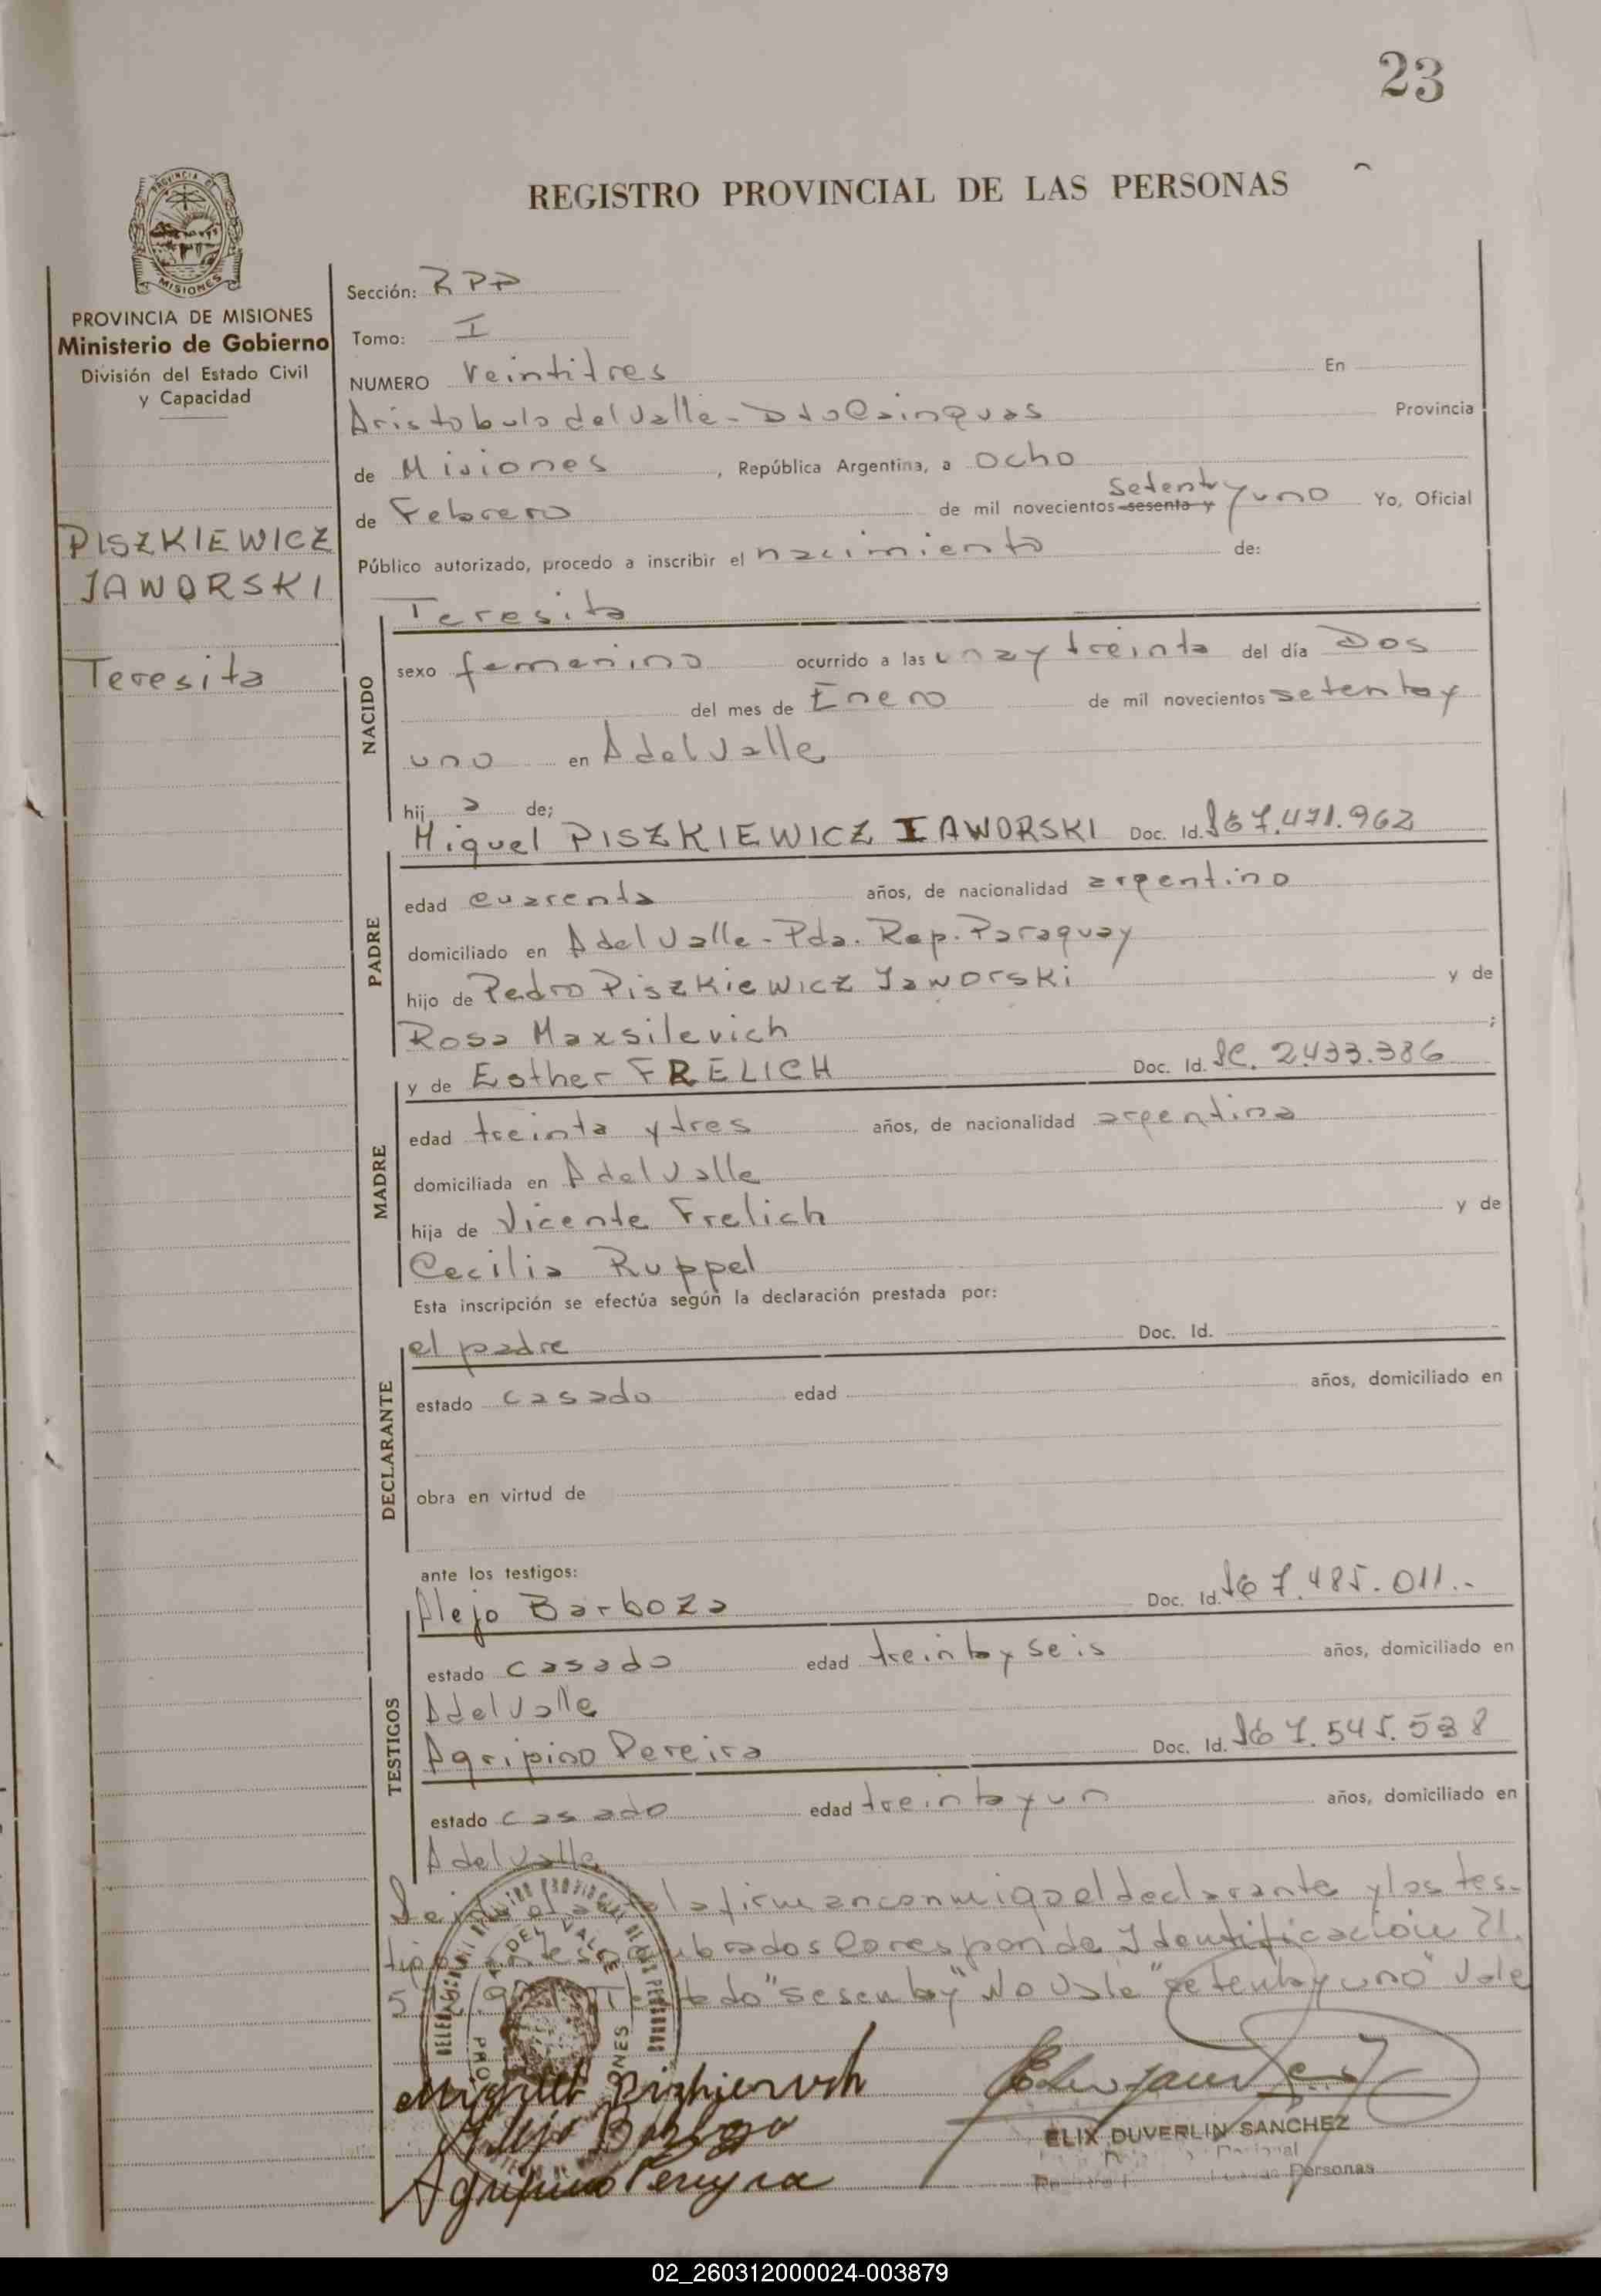 23
REGISTRO PROVINCIAL DE LAS PERSONAS
PROVINCIA DE
MISIONES
PROVINCIA DE MISIONES
Ministerio de Gobierno
División del Estado Civil
y Capacidad
PISZKIEWICZ
JAWORSKI
Teresita
Sección: RPP
Tomo: I
NUMERO veintitres En
Aristobulo del Valle - Dto Cainguas Provincia
de Misiones, República Argentina, a ocho
de Febrero de mil novecientos sesenta y setenta y uno Yo, Oficial
Público autorizado, procedo a inscribir el nacimiento de:
NACIDO
Teresita
sexo femenino ocurrido a las una y treinta del día Dos
del mes de Enero de mil novecientos setenta y
uno en A del Valle
hij a de;
PADRE
Miguel PISZKIEWICZ IAWORSKI Doc. Id. 7.471.962
edad cuarenta años, de nacionalidad argentino
domiciliado en A del Valle - Pda. Rep. Paraguay
hijo de Pedro Piszkiewicz Jaworski y de
Rosa Maxsilevich ;
MADRE
y de Esther FRELICH Doc. Id. 2.433.386
edad treinta y tres años, de nacionalidad argentina
domiciliada en A del Valle
hija de Vicente Frelich y de
Cecilia Ruppel
Esta inscripción se efectúa según la declaración prestada por:
DECLARANTE
el padre Doc. Id.
estado casado edad años, domiciliado en
obra en virtud de
ante los testigos:
TESTIGOS
Alejo Barboza Doc. Id. 7.485.011.-
estado casado edad treinta y seis años, domiciliado en
A del Valle
Agripino Pereira Doc. Id. 7.545.538
estado casado edad treinta y un años, domiciliado en
A del Valle
Leida el acta la firman conmigo el declarante y los tes-
tigos antes nombrados Corresponde Identificación 21.
Testado "sesenta y" No Vale "setenta y uno" Vale
Alejo Barboza
Agripino Pereyra
ELIX DUVERLIN SANCHEZ
Personas
02_260312000024-003879